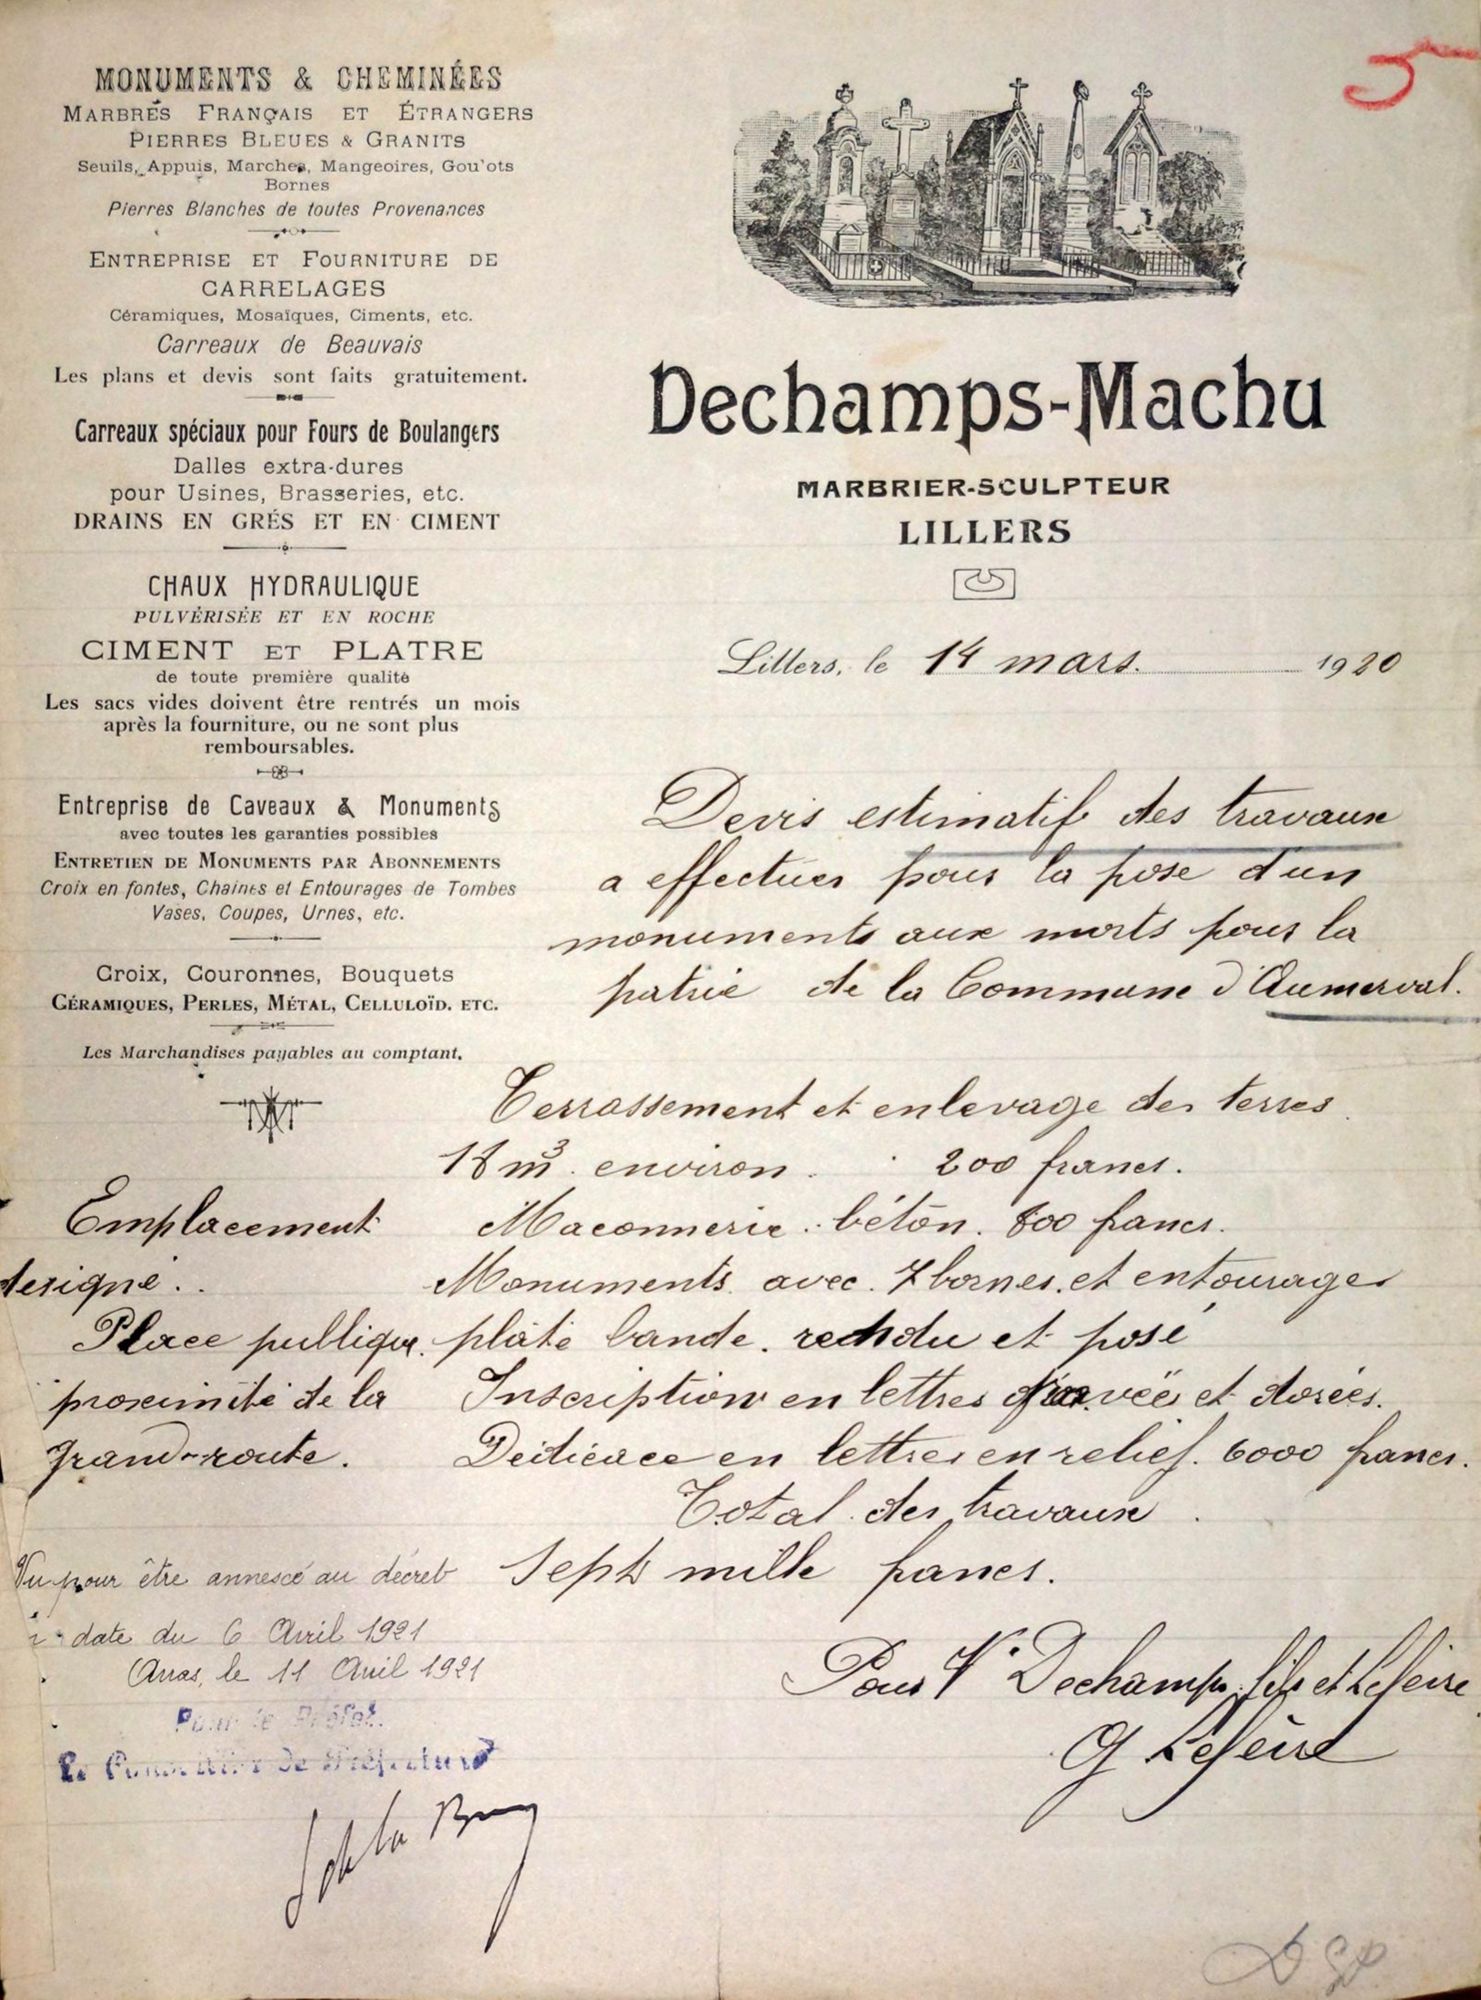 MONUMENTS & CHEMINÉES
MARBRES FRANÇAIS ET ÉTRANGERS
PIERRES BLEUES & GRANITS
Seuils, Appuis, Marches, Mangeoires, Gou'ots
Bornes
Pierres Blanches de toutes Provenances
ENTREPRISE ET FOURNITURE DE
CARRELAGES
Céramiques, Mosaïques, Ciments, etc.
Carreaux de Beauvais
Les plans et devis sont faits gratuitement.
Carreaux spéciaux pour Fours de Boulangers
Dalles extra-dures
pour Usines, Brasseries, etc.
DRAINS EN GRÉS ET EN CIMENT
CHAUX HYDRAULIQUE
PULVÉRISÉE ET EN ROCHE
CIMENT ET PLATRE
de toute première qualité
Les sacs vides doivent être rentrés un mois
après la fourniture, ou ne sont plus
remboursables.
Entreprise de Caveaux & Monuments
avec toutes les garanties possibles
ENTRETIEN DE MONUMENTS PAR ABONNEMENTS
Croix en fontes, Chaines et Entourages de Tombes
Vases, Coupes, Urnes, etc.
Croix, Couronnes, Bouquets
CÉRAMIQUES, PERLES, MÉTAL, CELLULOÏD. ETC.
Les Marchandises payables au comptant.
5
Dechamps-Machu
MARBRIER-SCULPTEUR
LILLERS
Lillers, le 14 mars. 1920
Devis estimatif des travaux
a effectuer pour la pose d'un
monuments aux morts pour la
patrie de la Commune d'Aumerval.
Terrassement et enlevage des terres
18 m3 environ. 200 francs.
Maconnerie. béton. 800 francs.
Monuments avec. 7 bornes. et entourages
plate bande. rendu et posé
Inscription en lettres gravées et dorées.
Dédicace en lettres en relief. 6000 francs.
Total des travaux
Sept mille francs.
Emplacement
designé..
Place publique.
proximité de la
grand-route.
Vu pour être annexé au décret
date du 6 Avril 1921
Arras, le 11 Avril 1921
Pour le Préfet.
Le Conseiller de Préfecture
Pour Ve Dechamps fils et Lefeire
G Lefeire